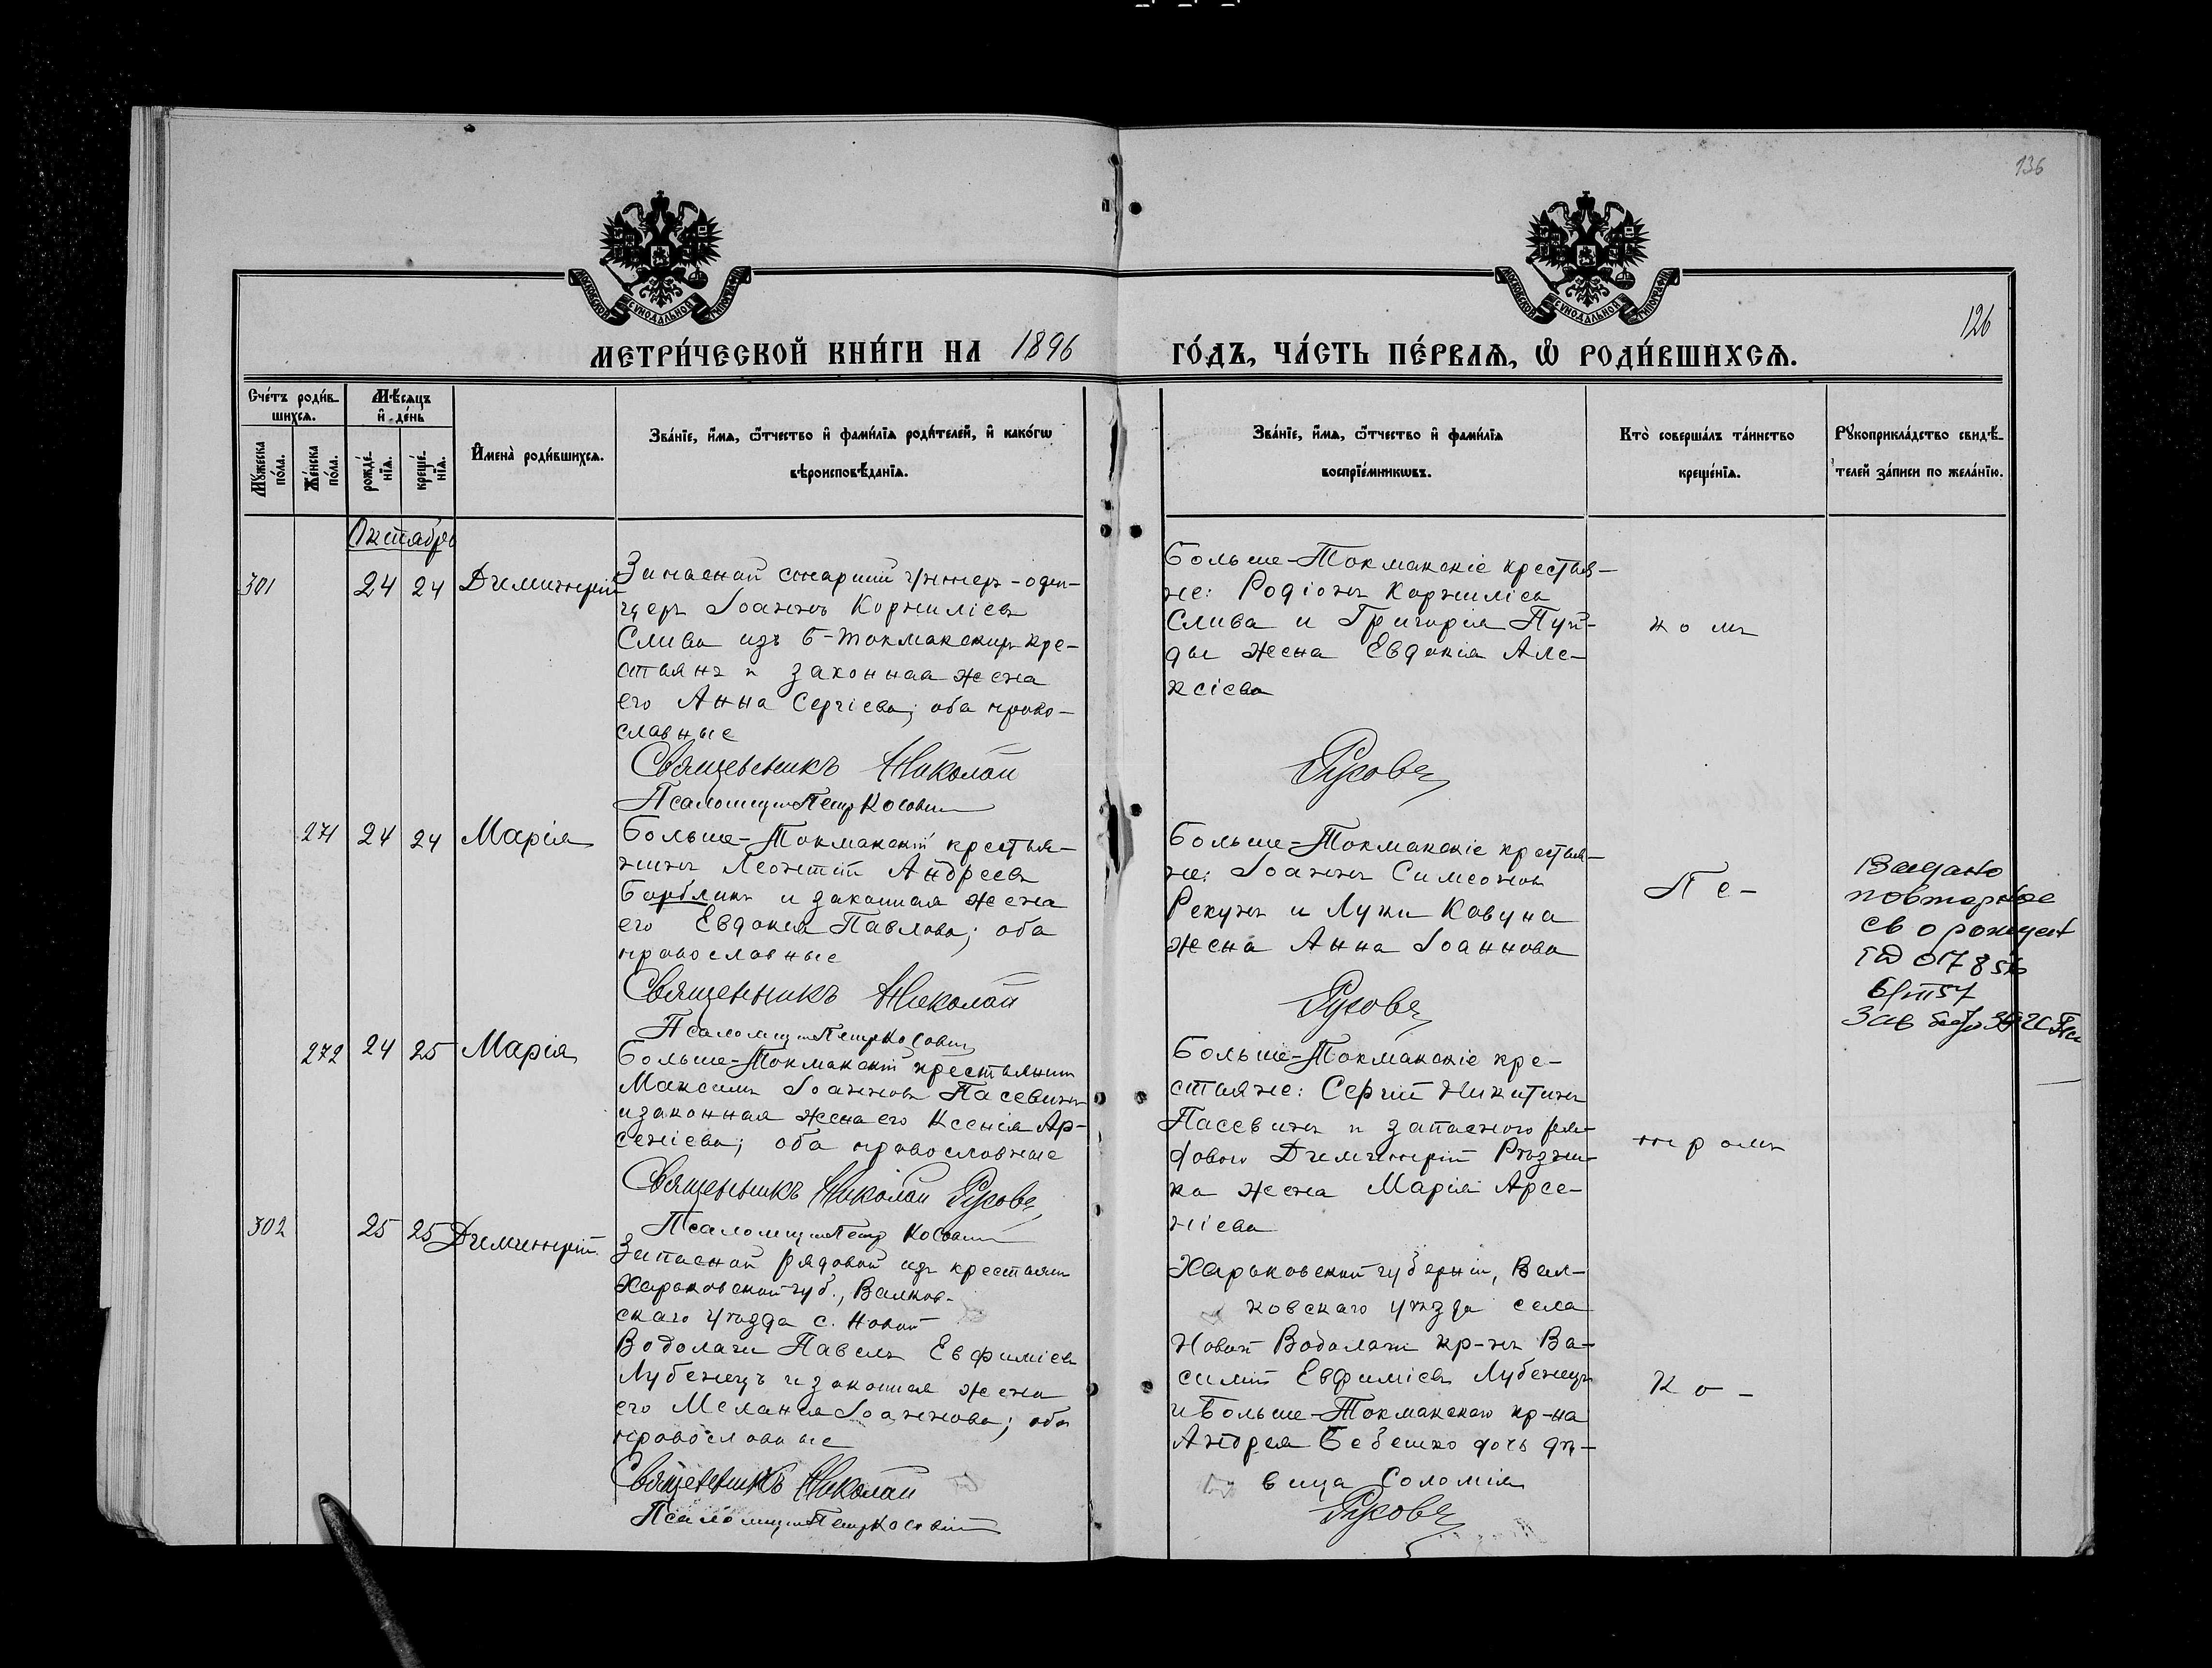 136
126
МЕТРИ́ЧЕСКОЙ КНИ́ГИ НА 1896 ГО́ДЪ, ЧА́СТЬ ПЕ́РВАѦ, Ѡ҆ РОДИ́ВШИХСѦ.
Сче́тъ роди́в-
шихсѧ.
Мꙋ́жеска по́ла.
Же́нска по́ла.
Мѣ́сѧцъ
и҆ де́нь
рожде́-
нїѧ.
креще́-
нїѧ.
И҆мена̀ роди́вшихсѧ.
Зва́нїе, и҆́мѧ, ѻ҆́тчество и҆ фами́лїѧ роди́телей, и҆ како́гѡ
вѣроисповѣ́данїѧ.
Зва́нїе, и҆́мѧ, ѻ҆́тчество и҆ фами́лїѧ
воспрїе́мникѡвъ.
Кто̀ соверша́лъ та́инство
креще́нїѧ.
Рꙋкоприкла́дство свидѣ́-
телей за́писи по жела́нїю.
Октябрь
301 24 24 Димитрій
Запасной старшій унтеръ-офи-
церъ Іоаннъ Корниліевъ
Слива изъ Б-Токмакскихъ кре-
стьянъ и законная жена
его Анна Сергіева; оба право-
славные
Священникъ Николай
Псаломщикъ Петръ
Больше-Токмакскіе крестья-
не: Родіонъ Корниліевъ
Слива и Григорія Пуй-
ды жена Евдокія Але-
ксіева
Русовъ
ко мъ
271 24 24 Марія
Больше-Токмакскій крестья-
нинъ Леонтій Андреевъ
и законная жена
его Евдокія Павлова; оба
православные
Священникъ Николай
Псаломщикъ Петръ
Больше-Токмакскіе крестья-
не: Іоаннъ Симеоновъ
Рекунъ и Луки Кавуна
жена Анна Іоаннова
Русовъ
Пе-
Выдано
повторное
св о рожден
272 24 25 Марія
Больше-Токмакскій крестьянинъ
Максимъ Іоанновъ Пасевинъ
и законная жена его Ксенія Ар-
сеніева; оба православные
Священникъ Николай Русовъ
Псаломщикъ Петръ
Больше-Токмакскіе кре-
стьяне: Сергій Никитинъ
Пасевинъ и запасного ря-
доваго Димитрій Рѣзни-
ка жена Марія Арсе-
ніева
тромъ
302 25 25 Димитрій
Запасной рядовой изъ крестьянъ
Харьковской губ., Валков-
скаго уѣзда с. Новой
Водолаги Павелъ Евфиміевъ
Лубенецъ и законная жена
его Меланія Іоаннова; оба
православные
Священникъ Николай
Псаломщикъ Петръ
Харьковской губерніи, Вал-
ковскаго уѣзда села
Новой Водолаги кр-нъ Ва-
силій Евфиміевъ Лубенецъ
и Больше-Токмакскаго кр-на
Андрея Бебешко дочь дѣ-
вица Соломія
Русовъ
Ко-